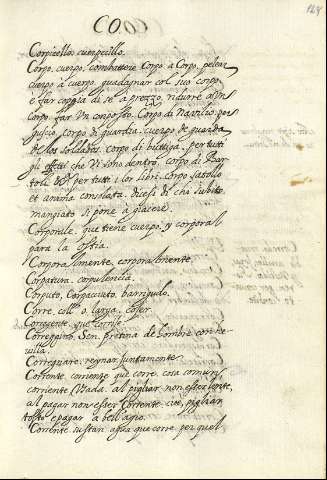 CO.
124
Corpicello: cuerpecillo.
Corpo, cuerpo, combattere Corpo à Corpo, pelear
cuerpo à cuerpo, guadagnar col suo corpo
è far coppia di se a prezzo, ridurre a un
Corpo, far Un corpo solo. Corpo di Navilio, por
guscio, corpo di guardia, cuerpo de guarda
de los soldados. corpo di buttiga. per tutti
gli effetti che Vi sono dentro, corpo di Bar-
toli per tutti i lor libri. Corpo satollo
et anima consolata. dicesi di chi subito
mangiato si pone à giacere.
Corporale, que tiene cuerpo, y corporal
para la ostia.
Corporalmente, corporalmente.
Corpatura, corpulencia.
Corputo, Corpacciuto, barrigudo.
Corre, coll' o largo, coger.
Corrente que corrije
Correggino. Sen. pretina de hombre corre-
uilla.
Corregnare, reynar juntamente.
Corrente, corriente que corre, cosa comun,
corriente Vada. al pigliar non esser lente,
al pagar non esser Corrente cioè, pigliar
tosto e pagar a bell' agio.
Corrente sustan. agua que corre per quel